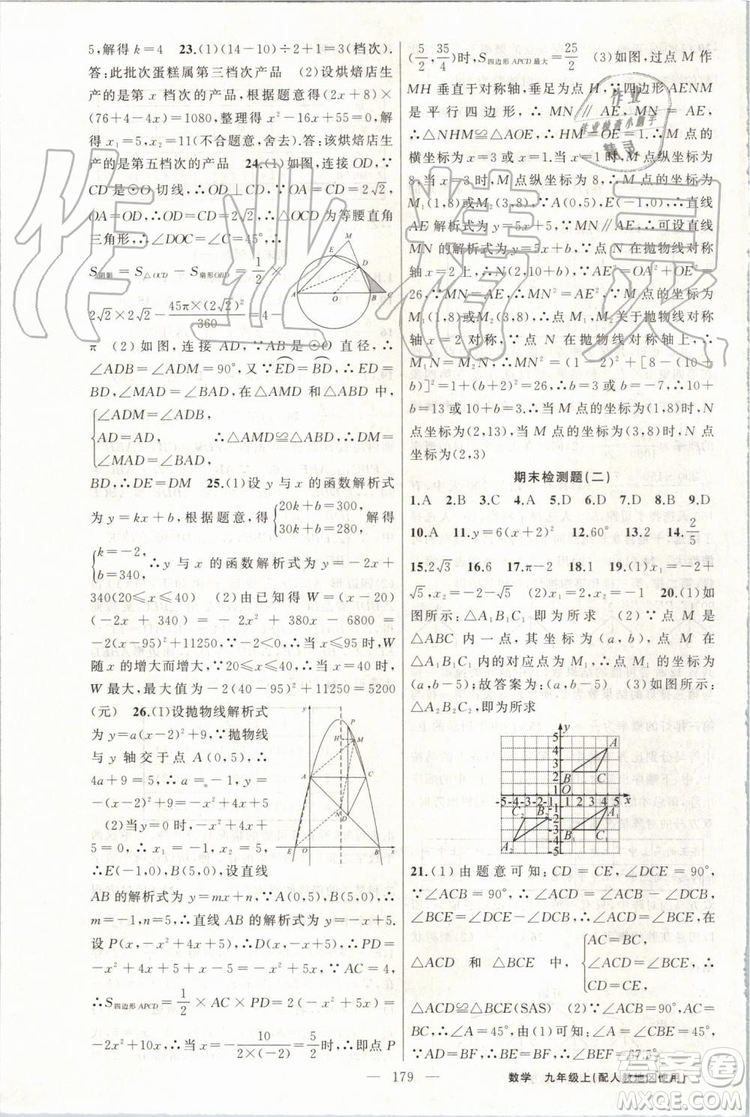 5,解得 k=4 23.(1)(14-10)÷2+1=3(档次).
答:此批次蛋糕属第三档次产品 (2)设烘焙店生
产的是第 x 档次的产品,根据题意得(2x+8)×
(76+4-4x)=1080,整理得 x²-16x+55=0,解
得 x₁=5,x₂=11(不合题意,舍去).答:该烘焙店
生产的是第五档次的产品 24.(1)如图,连接 OD,∵
CD 是⊙O 切线,∴OD⊥CD,∵OA=CD=2√2,
OA=OD,∴OD=CD=2√2,∴△OCD 为等腰直角
三角形,∴∠DOC=∠C=45°,∴
S阴影=S△OCD-S扇形OBD=1/2×
2√2×2√2-45π×(2√2)²/360=4-
π (2)如图,连接 AD,∵AB 是⊙O 直径,∴
∠ADB=∠ADM=90°,又∵ED=BD,∴ED=
BD,∠MAD=∠BAD,在△AMD 和△ABD 中,
{∠ADM=∠ADB,
AD=AD,
∠MAD=∠BAD,
∴△AMD≌△ABD,∴DM=
BD,∴DE=DM 25.(1)设 y 与 x 的函数解析式
为 y=kx+b,根据题意,得{20k+b=300,
30k+b=280, 解得
{k=-2,
b=340, ∴y 与 x 的函数解析式为 y=-2x+
340(20≤x≤40) (2)由已知得 W=(x-20)
(-2x+340)=-2x²+380x-6800=
-2(x-95)²+11250,∵-2<0,∴当 x≤95 时,W
随 x 的增大而增大,∵20≤x≤40,∴当 x=40 时,
W 最大,最大值为-2(40-95)²+11250=5200
(元) 26.(1)设抛物线解析式
为 y=a(x-2)²+9,∵抛物线
与 y 轴交于点 A(0,5),∴
4a+9=5,∴a=-1,y=
-(x-2)²+9=-x²+4x+5
(2)当 y=0 时,-x²+4x
+5=0,∴x₁=-1,x₂=5,
∴E(-1,0),B(5,0),设直线
AB 的解析式为 y=mx+n,∵A(0,5),B(5,0),∴
m=-1,n=5,∴直线 AB 的解析式为 y=-x+5.
设 P(x,-x²+4x+5),∴D(x,-x+5),∴PD=
-x²+4x+5+x-5=-x²+5x,∵AC=4,
∴S四边形APCD=1/2×AC×PD=2(-x²+5x)=
-2x²+10x,∴当 x=-10/(2×(-2))=5/2时,∴即点 P
(5/2,35/4)时,S四边形APCD最大=25/2 (3)如图,过点 M 作
MH 垂直于对称轴,垂足为点 H,∵四边形 AENM
是平行四边形,∴MN∥AE,MN=AE,∴
△NHM≌△AOE,∴HM=OE=1,∴点 M 的
横坐标为 x=3 或 x=1,当 x=1 时,M 点纵坐标为
8,当 x=3 时,M 点纵坐标为 8,∴点 M 的坐标为
M₁(1,8)或M₂(3,8),∵A(0,5),E(-1,0),∴直线
AE 解析式为 y=5x+5,∵MN∥AE,∴可设直线
MN 的解析式为 y=5x+b,∵点 N 在抛物线对称
轴 x=2 上,∴N(2,10+b),∵AE²=OA²+OE²=
26,∵MN=AE,∴MN²=AE²,∵M 点的坐标为
M₁(1,8)或M₂(3,8),∴点 M₁,M₂ 关于抛物线对称
轴 x=2 对称,∵点 N 在抛物线对称轴上,∴
M₁N=M₂N,∴MN²=(1-2)²+[8-(10+
b)]²=1+(b+2)²=26,∴b=3 或 b=-7,∴10+b
=13 或 10+b=3,∴当 M 点的坐标为(1,8)时,N
点坐标为(2,13),当 M 点的坐标为(3,8)时,N 点
坐标为(2,3)
期末检测题(二)
1.A 2.B 3.C 4.A 5.D 6.D 7.D 8.B 9.D
10.A 11.y=6(x+2)² 12.60° 13.2 14.2/5
15.2√3 16.6 17.π-2 18.1 19.(1)x₁=-2
+√5,x₂=-2-√5 (2)x₁=2,x₂=4 20.(1)如
图所示:△A₁B₁C₁即为所求 (2)∵点 M 是
△ABC 内一点,其坐标为(a,b),点 M 在
△A₁B₁C₁ 内的对应点为 M₁,∴点 M₁ 的坐标为
(a,b-5);故答案为:(a,b-5) (3)如图所示:
△A₂B₂C₂即为所求
21.(1)由题意可知:CD=CE,∠DCE=90°,
∵∠ACB=90°,∴∠ACD=∠ACB-∠DCB,
∠BCE=∠DCE-∠DCB,∴∠ACD=∠BCE,在
△ACD 和△BCE 中,{AC=BC,
∠ACD=∠BCE,
CD=CE,
∴△ACD≌△BCE(SAS) (2)∵∠ACB=90°,
AC=BC,∴∠A=45°,∵AD=BF,∴BE=BF,
∵∠CBE=∠A=45°,∴∠BEF=67.5°
— 179 —
数学 九年级上(配人教地区使用)
作业精灵